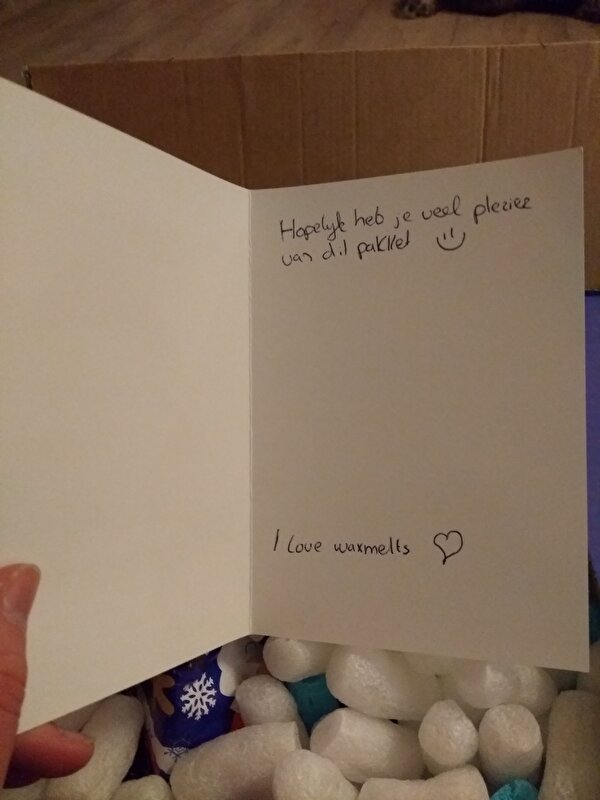 Hopelijk heb je veel plezier
van dit pakket
I love waxmelts